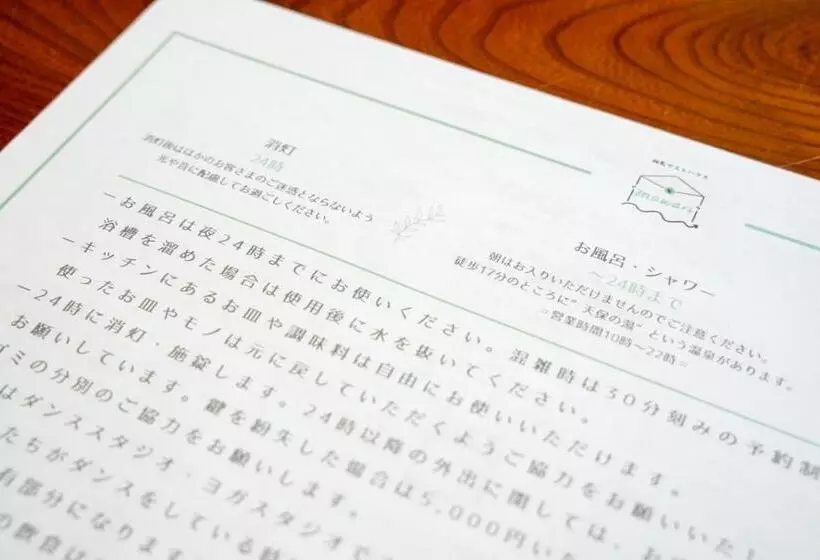 消灯
24時
消灯後はほかのお客さまのご迷惑とならないよう
光や音に配慮してお過ごしください。
お風呂・シャワー
〜24時まで
朝はお入りいただけませんのでご注意ください。
徒歩17分のところに"天保の湯"という温泉があります。
=営業時間10時〜22時=
ーお風呂は夜24時までにお使いください。混雑時は30分刻みの予約制
浴槽を溜めた場合は使用後に水を抜いてください。
ーキッチンにあるお皿や調味料は自由にお使いいただけます。
使ったお皿やモノは元に戻していただくようご協力をお願いいた
ー24時に消灯・施錠します。24時以降の外出に関しては、
お願いしています。鍵を紛失した場合は5,000円い
ゴミの分別のご協力をお願いします。
はダンススタジオ・ヨガスタジオで
たちがダンスをしている
有部分になります
の飲食は